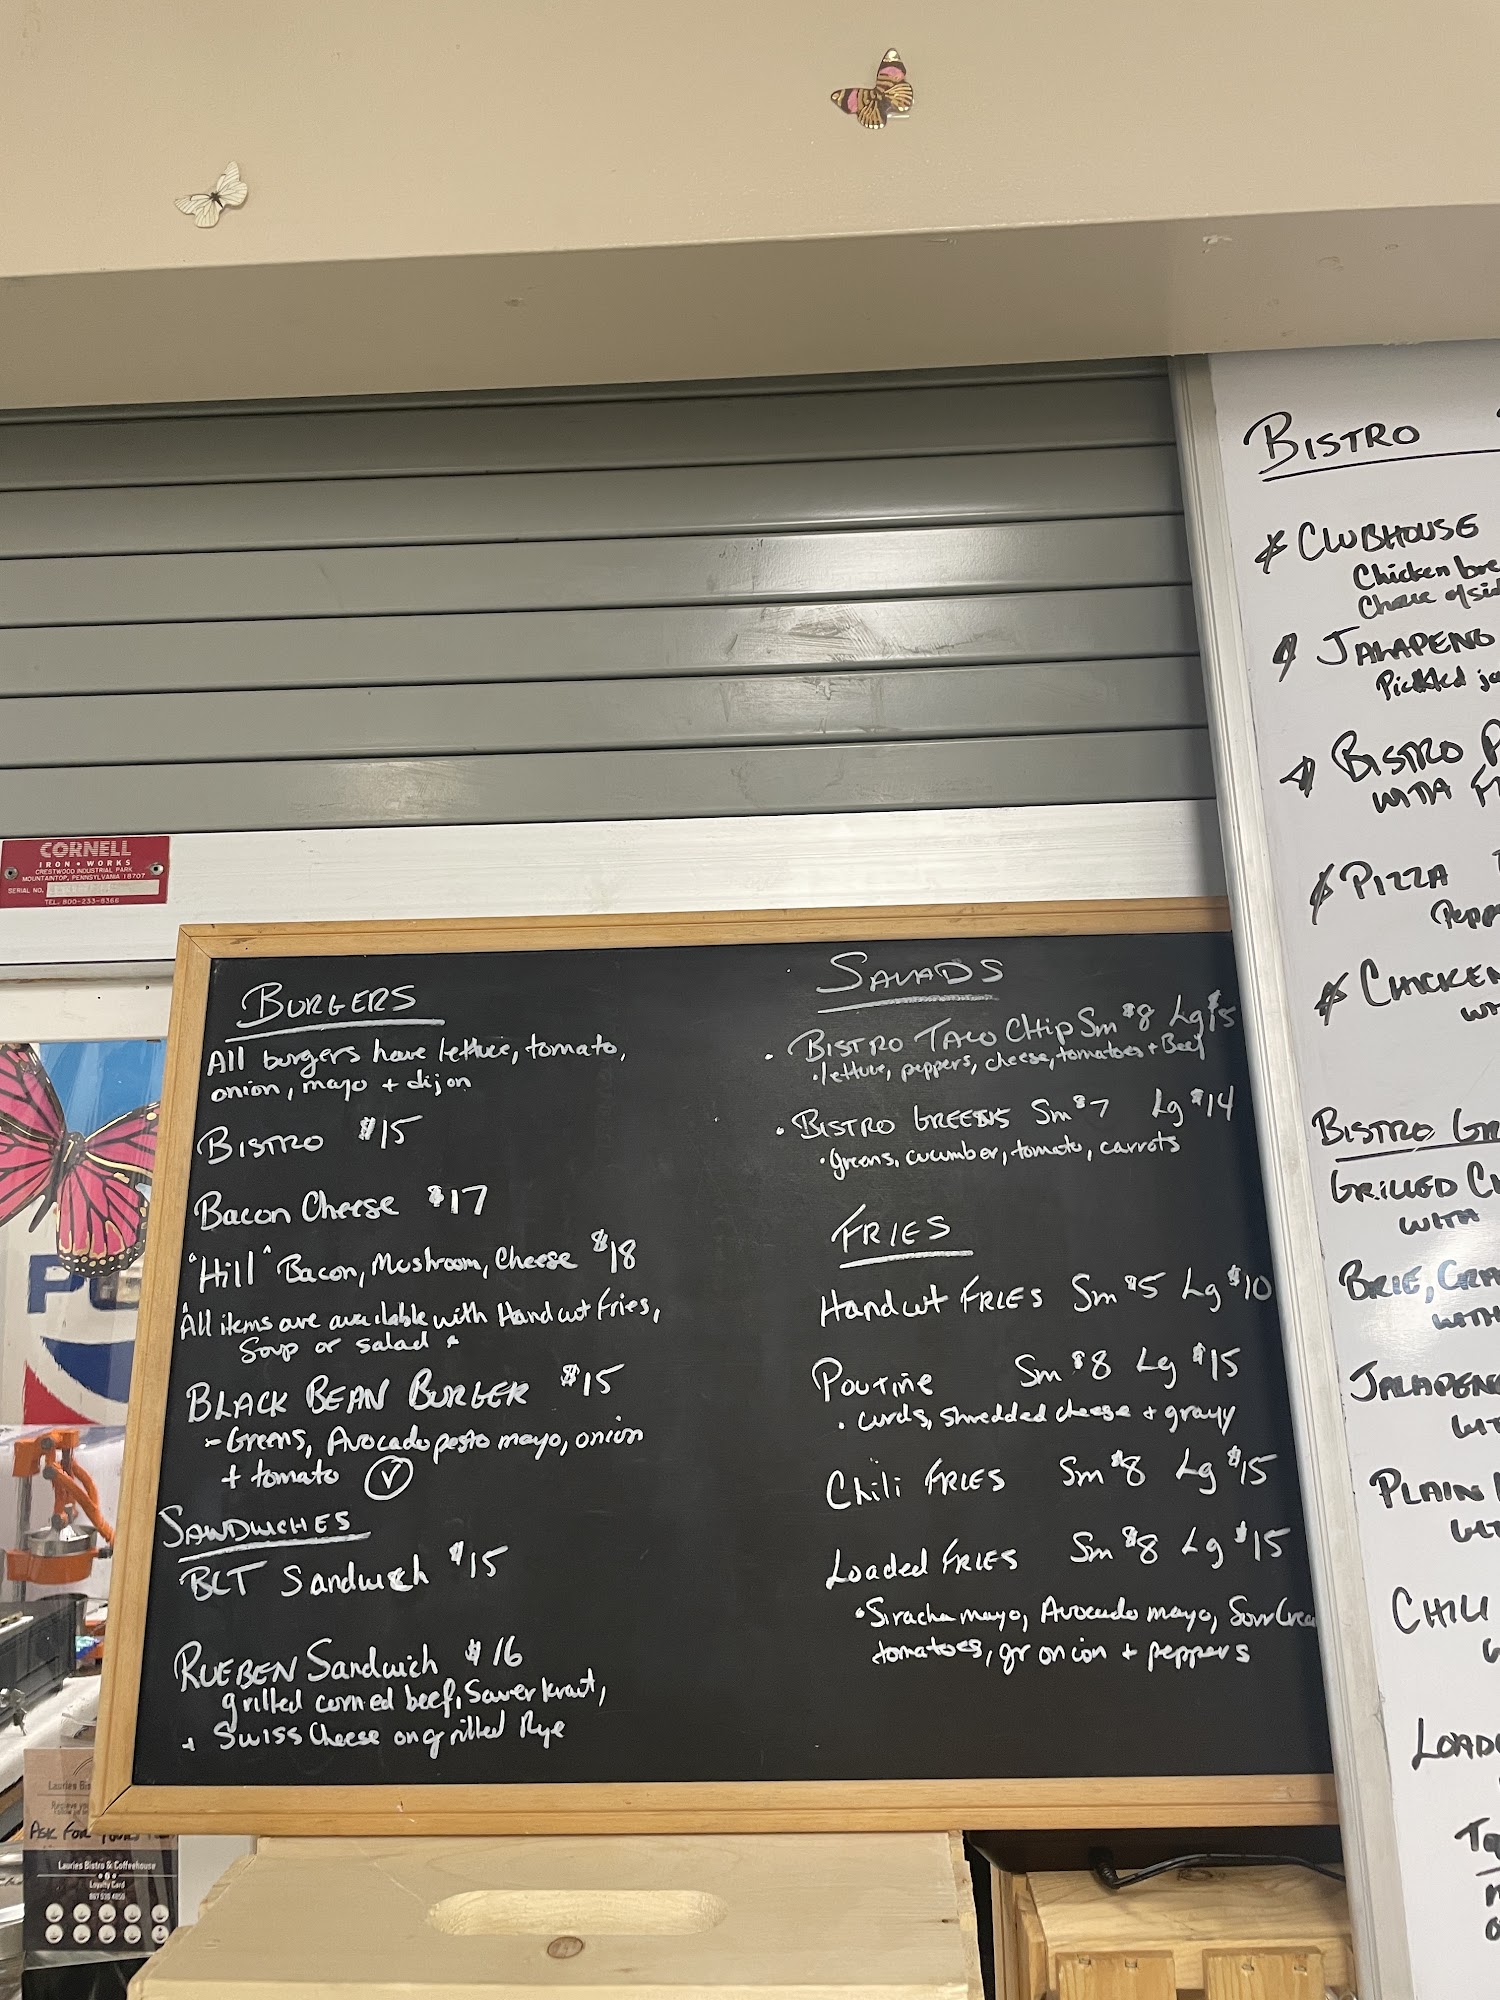 CORNELL
IRON • WORKS
CRESTWOOD INDUSTRIAL PARK
MOUNTAINTOP, PENNSYLVANIA 18707
SERIAL NO.
TEL. 800-233-8366
BURGERS
All burgers have lettuce, tomato,
onion, mayo + dijon
BISTRO $15
Bacon Cheese $17
"Hill" Bacon, Mushroom, Cheese $18
All items are available with Handcut fries,
Soup or salad *
BLACK BEAN BURGER $15
- Greens, Avocado pesto mayo, onion
+ tomato V
SANDWICHES
BLT Sandwich $15
RUEBEN Sandwich $16
grilled corned beef, Sauerkraut,
+ Swiss Cheese on grilled Rye
SALADS
• BISTRO TACO CHip Sm $8 Lg $15
• lettuce, peppers, cheese, tomatoes + Beef
• BISTRO GREENS Sm $7 Lg $14
• greens, cucumber, tomato, carrots
FRIES
Handcut FRIES Sm $5 Lg $10
Poutine Sm $8 Lg $15
• curds, shredded cheese + gravy
Chili FRIES Sm $8 Lg $15
Loaded FRIES Sm $8 Lg $15
• Siracha mayo, Avocado mayo, Sour Crea
tomatoes, gr onion + peppers
BISTRO
CLUBHOUSE
Chicken bre
Choice of sid
JALAPENO
Pickled ja
BISTRO P
WITH F
PIZZA
Pepp
CHICKEN
BISTRO GR
GRILLED C
WITH
BRIE, CRA
WITH
JALAPENO
WIT
PLAIN
WIT
CHILI
LOAD
Lauries Bis
ASK FOR YOURS
Lauries Bistro & Coffeehouse
Loyalty Card